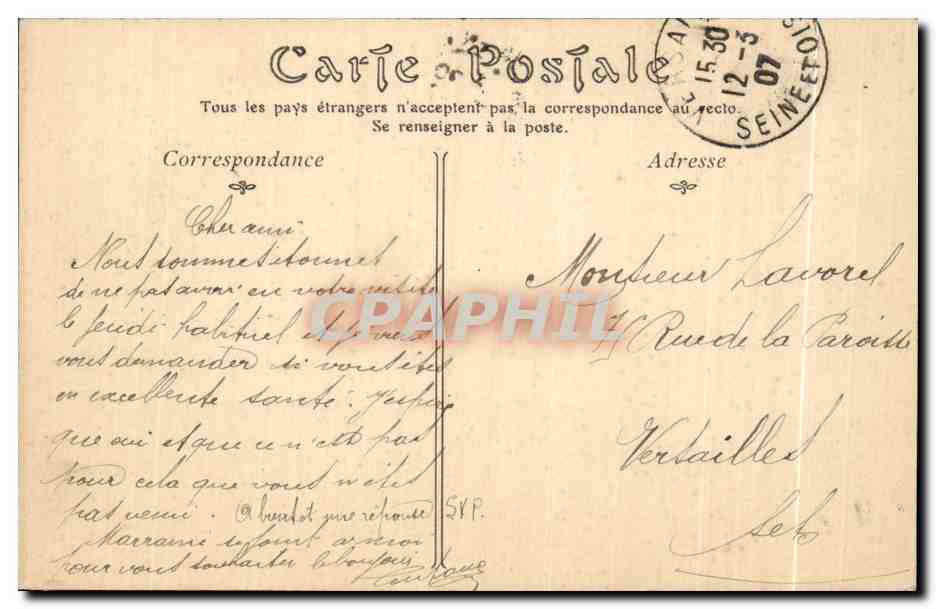 Carte Postale
Tous les pays étrangers n'acceptent pas la correspondance au recto.
Se renseigner à la poste.
VERSAI
15 30
12 - 3
07
SEINE ET OIS
Correspondance
Adresse
Cher ami
Nous sommes étonnés
de ne pas avoir eu votre visite
le jeudi habituel et je viens
vous demander si vous êtes
en excellente santé. J'espère
que oui et que ce n'est pas
pour cela que vous n'êtes
pas venu. A bientôt une réponse S.V.P.
Marraine se joint à moi
pour vous souhaiter le bonjour
Monsieur Lavorel
Rue de la Paroisse
Versailles
CPAPHIL